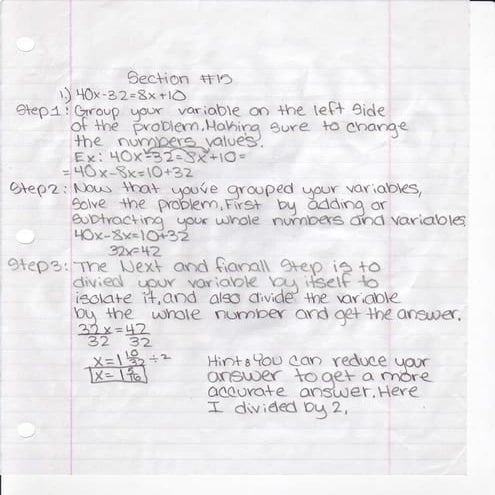 Section #13
1) 40x-32=8x+10
Step1: Group your variable on the left side
of the problem. Making sure to change
the numbers values.
Ex: 40x-32=8x+10=
=40x-8x=10+32
Step2: Now that you've grouped your variables,
solve the problem. First by adding or
subtracting your whole numbers and variables.
40x-8x=10+32
32x=42
Step3: The Next and fianall step is to
divied your variable by itself to
isolate it, and also divide the variable
by the whole number and get the answer.
32x=42
32 32
x=1 10/32 ÷2
x=1 5/16
Hint: You can reduce your
answer to get a more
accurate answer. Here
I divided by 2.